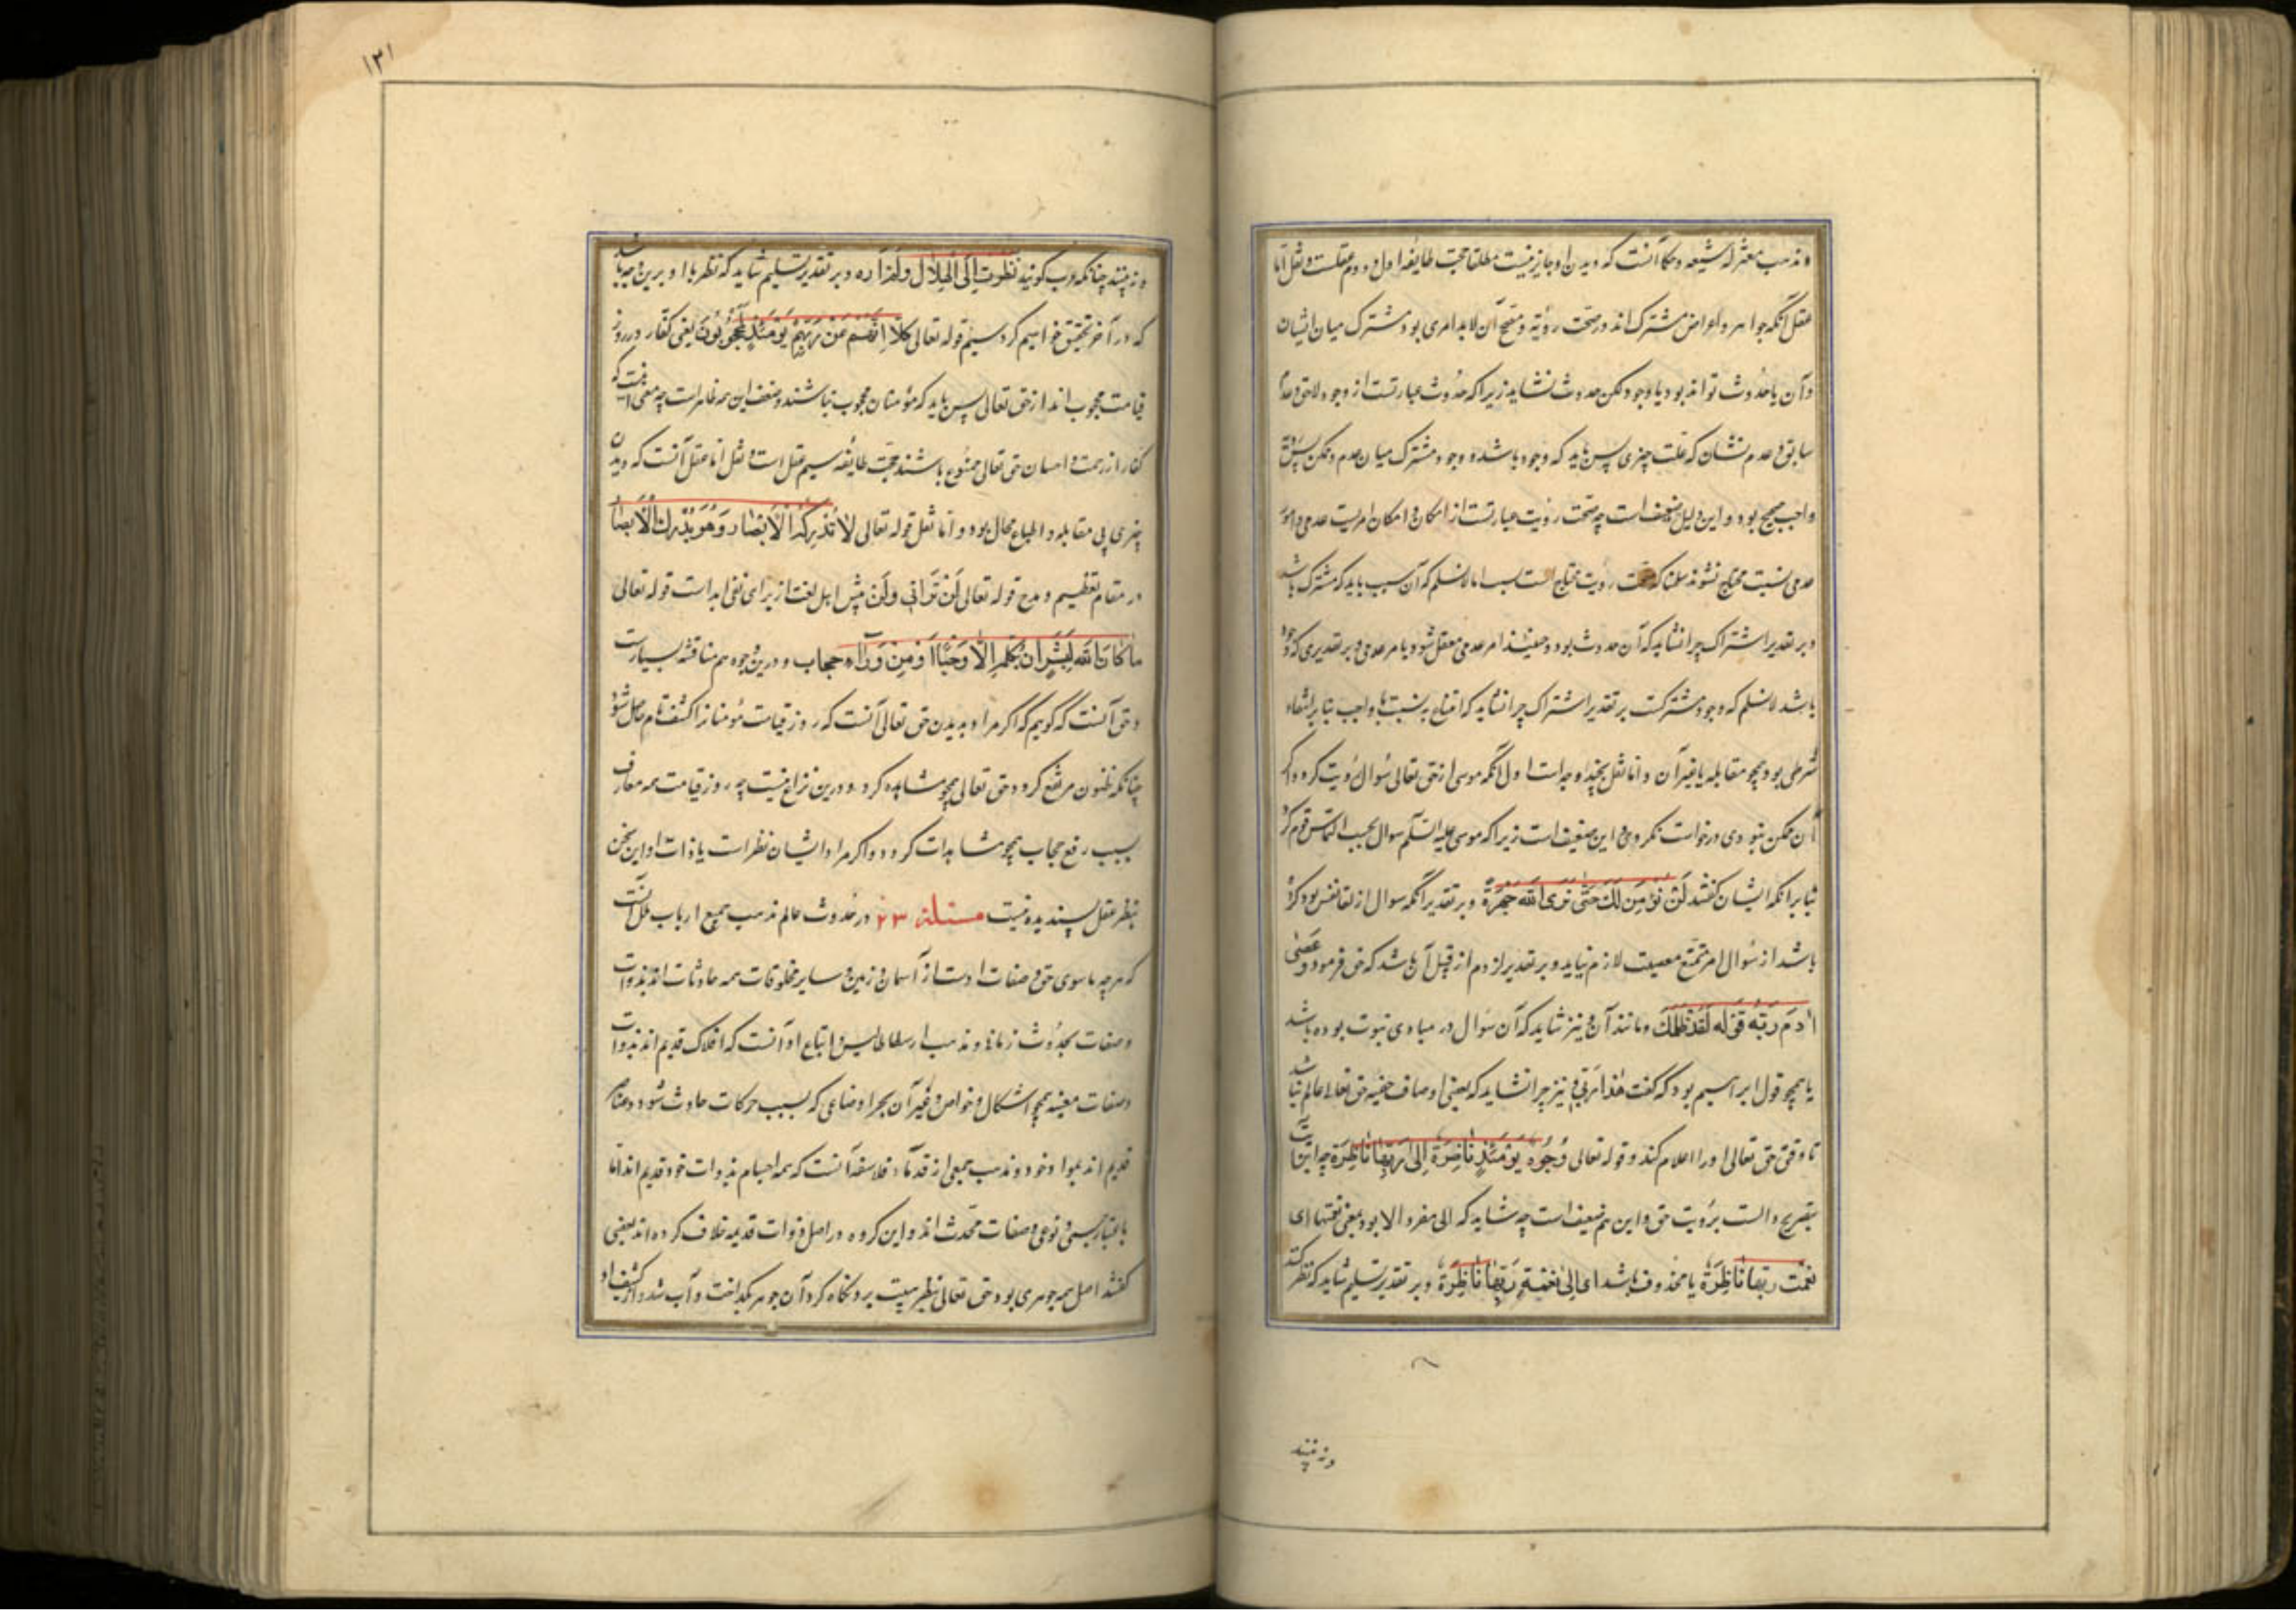 و مذهب معتزله و شیعه و حکما آنست که دیدن او جایز نیست مطلقا حجت طایفه اول و دوم عقلست و نقل اما
عقل آنکه جواهر و اعراض مشترک‌اند در صحت رؤیه و مصحح آن لابد امری بود مشترک میان ایشان
و آن یا حدوث تواند بود یا وجود لکن حدوث نشاید زیرا که حدوث عبارتست از وجود لاحق و عدم
سابق و عدم نشان که علت چیزی پس باید که وجود باشد و وجود مشترک میان عدم و ممکن پس رؤیت
واجب صحیح بود و این دلیل ضعیف است چه صحت رؤیت عبارتست از امکان و امکان امریست عدمی و امور
عدمی بسبب محتاج نشوند سلمنا که صحت رؤیت محتاج است بسبب اما لانسلم که آن سبب باید که مشترک باشد
و بر تقدیر اشتراک چرا نشاید که آن حدوث بود و حینئذ امر عدمی معلل شود بامر عدمی و بر تقدیری که وجود
باشد لانسلم که وجود مشترکست بر تقدیر اشتراک چرا نشاید که امتناع بنسبت با واجب بنابر انتفاء
شرطی بود همچو مقابله یا غیر آن و اما نقل بچند وجه است اول آنکه موسی از حق تعالی سؤال رؤیت کرد و اگر
آن ممکن نبودی درخواست نکردی و این ضعیف است زیرا که موسی علیه السلم سؤال بحسب التماس قوم کرد
بنابر آنکه ایشان گفتند لَنْ نُؤْمِنَ لَكَ حَتَّى نَرَى اللهَ جَهْرَةً و بر تقدیر آنکه سؤال از تلقا نفس بود کرده
باشد از سؤال امر ممتنع معصیت لازم نیاید و بر تقدیر لزوم از قبیل آن باشد که حق فرمود وَعَصَى
آدَمَ رَبَّه قوله لَقَدْ ظَلَمَكَ و مانند آن و نیز شاید که آن سؤال در مبادی نبوت بوده باشد
یا همچو قول ابراهیم بود که گفت هَذَا رَبِّي و نیز چرا نشاید که بعضی اوصاف خفیه حق تعالی عالم نباشد
تا وقتی حق تعالی او را اعلام کند و قوله تعالی وُجُوهٌ يَوْمَئِذٍ نَاضِرَة إِلَى رَبِّهَا نَاظِرَة چه این آیت
بتصریح دالست برؤیت حق و این هم ضعیف است چه شاید که الی مفرد آلا بود بمعنی نعمتها ای
نعمت رَبِّهَا نَاظِرَةٌ یا محذوف باشد ای الی نعمة رَبِّهَا نَاظِرَة و بر تقدیر تسلیم شاید که نظر کنند
و نه بینند
۱۳۱
و نه بینند چنانکه عرب گویند نظرت الی الهلال ولم اره و بر تقدیر تسلیم شاید که نظر با او برین وجه باشد
که در آخر تحقیق خواهیم کرد سیم قوله تعالی كَلَّا إِنَّهُمْ عَنْ رَبِّهِمْ يَوْمَئِذٍ لَمَحْجُوبُونَ یعنی کفار در روز
قیامت محجوب‌اند از حق تعالی پس باید که مؤمنان محجوب نباشند و ضعف این همه ظاهر است چه معنی آنست که
کفار از رحمت و احسان حق تعالی ممنوع باشند حجت طایفه سیم عقل است و نقل اما عقل آنست که دیدن
چیزی بی مقابله و انطباع محال بود و اما نقل قوله تعالی لَا تُدْرِكُهُ الْأَبْصَار وَهُوَ يُدْرِكُ الْأَبْصَارَ
در مقام تعظیم و مدح قوله تعالی لَنْ تَرَانِي وَلَنْ پیش اهل لغت از برای نفی ابد است قوله تعالی
مَا كَانَ لِبَشَرٍ أَنْ يُكَلِّمَهُ اللهُ إِلَّا وَحْيًا أَوْ مِنْ وَرَاء حجاب و درین وجوه هم مناقشه بسیارست
و حق آنست که گوییم که اگر مراد بدیدن حق تعالی آنست که روز قیامت مؤمنانرا کشف تام حاصل شود
چنانکه ظنون مرتفع گردد و حق تعالی همچو مشاهده گردد درین نزاع نیست چه روز قیامت همه معارف
بسبب رفع حجاب همچو مشاهدات گردد و اگر مراد ایشان نظر است با ذات او این سخن
بنظر عقل پسندیده نیست مسئله ۲۳ در حدوث عالم مذهب جمیع ارباب ملل آنست
که هرچه ماسوی حق و صفات اوست از آسمان و زمین و سایر مخلوقات همه حادثات‌اند بذوات
و صفات بحدوث زمانی و مذهب ارسطاطالیس و اتباع او آنست که افلاک قدیم‌اند بذوات
و صفات معینه همچو اشکال و خواص و غیر آن بجز اوضاعی که بسبب حرکات حادث شود و عناصر
قدیم‌اند بمواد خود و مذهب جمعی از قدماء فلاسفه آنست که همه اجسام بذوات خود قدیم‌اند اما
باعتبار جسمی و نوعی و صفات محدث‌اند و این گروه در اصل ذوات قدیمه خلاف کرده‌اند بعضی
گفتند اصل همه جوهری بود حق تعالی بنظر هیبت برو نگاه کرد آن جوهر بگداخت و آب شد و از کشف او